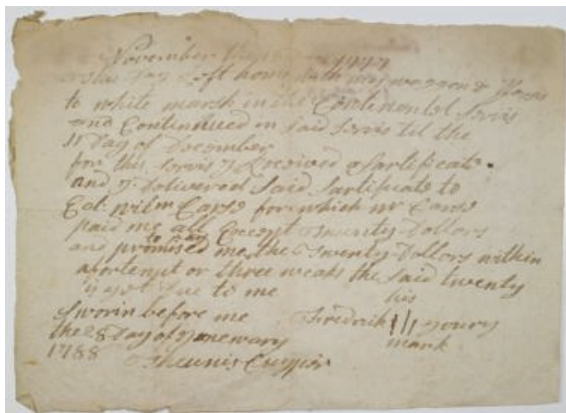 November 1777
this Day Left home with my waggon & Horses
to white marsh in the Continentel Servis
and Continnued in said Servis til the
11 Day of December
for this Servis I Received a Sartificate
and I Delivered Said Sartificate to
Col: for which mr
paid me all Except Twenty Dollars
and promised to pay me the Twenty Dollars within
a fortenyt or three weaks the Said twenty
is yet Due to me
his
Sworin before me Fredrik ||| youry
the 28 Day of Jenewary mark
1788 Theunis